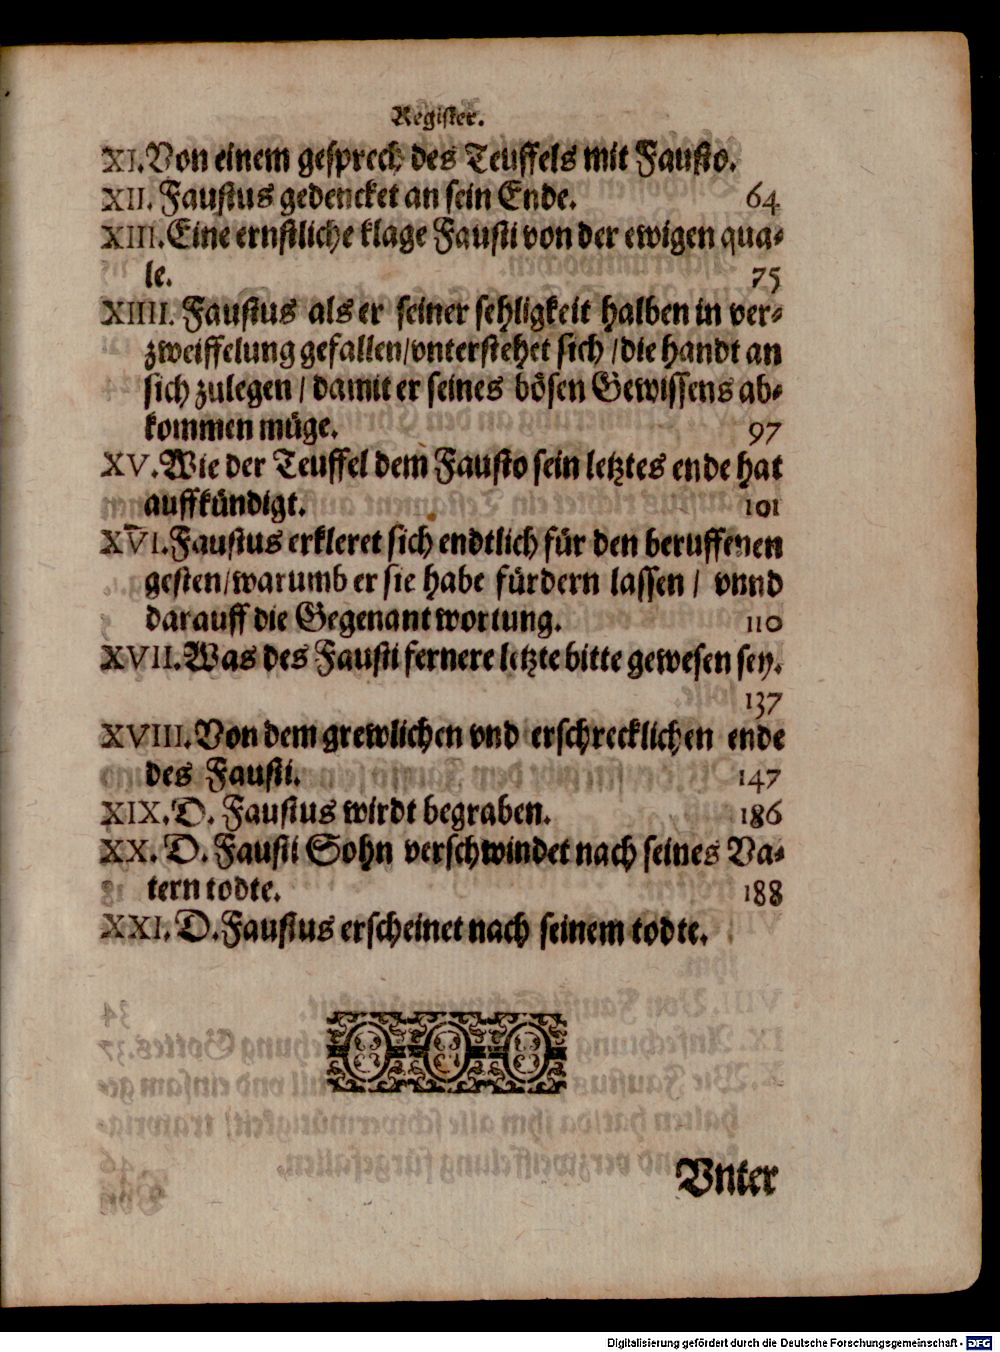 Register.
XI. Von einem gesprech des Teuffels mit Fausto.
XII. Faustus gedencket an sein Ende. 64
XIII. Eine ernstliche klage Fausti von der ewigen qua-
le. 75
XIIII. Faustus als er seiner sehligkeit halben in ver-
zweiffelung gefallen/vnterstehet sich/die handt an
sich zulegen/damit er seines bösen Gewissens ab-
kommen müge. 97
XV. Wie der Teuffel dem Fausto sein letztes ende hat
auffkündigt. 101
XVI. Faustus erkleret sich endtlich für den beruffenen
gesten/warumb er sie habe fürdern lassen/ vnnd
darauff die Gegenantwortung. 110
XVII. Was des Fausti fernere letzte bitte gewesen sey.
137
XVIII. Von dem grewlichen vnd erschrecklichen ende
des Fausti. 147
XIX. D. Faustus wirdt begraben. 186
XX. D. Fausti Sohn verschwindet nach seines Va-
tern todte. 188
XXI. D. Faustus erscheinet nach seinem todte.
Vnter
Digitalisierung gefördert durch die Deutsche Forschungsgemeinschaft - DFG